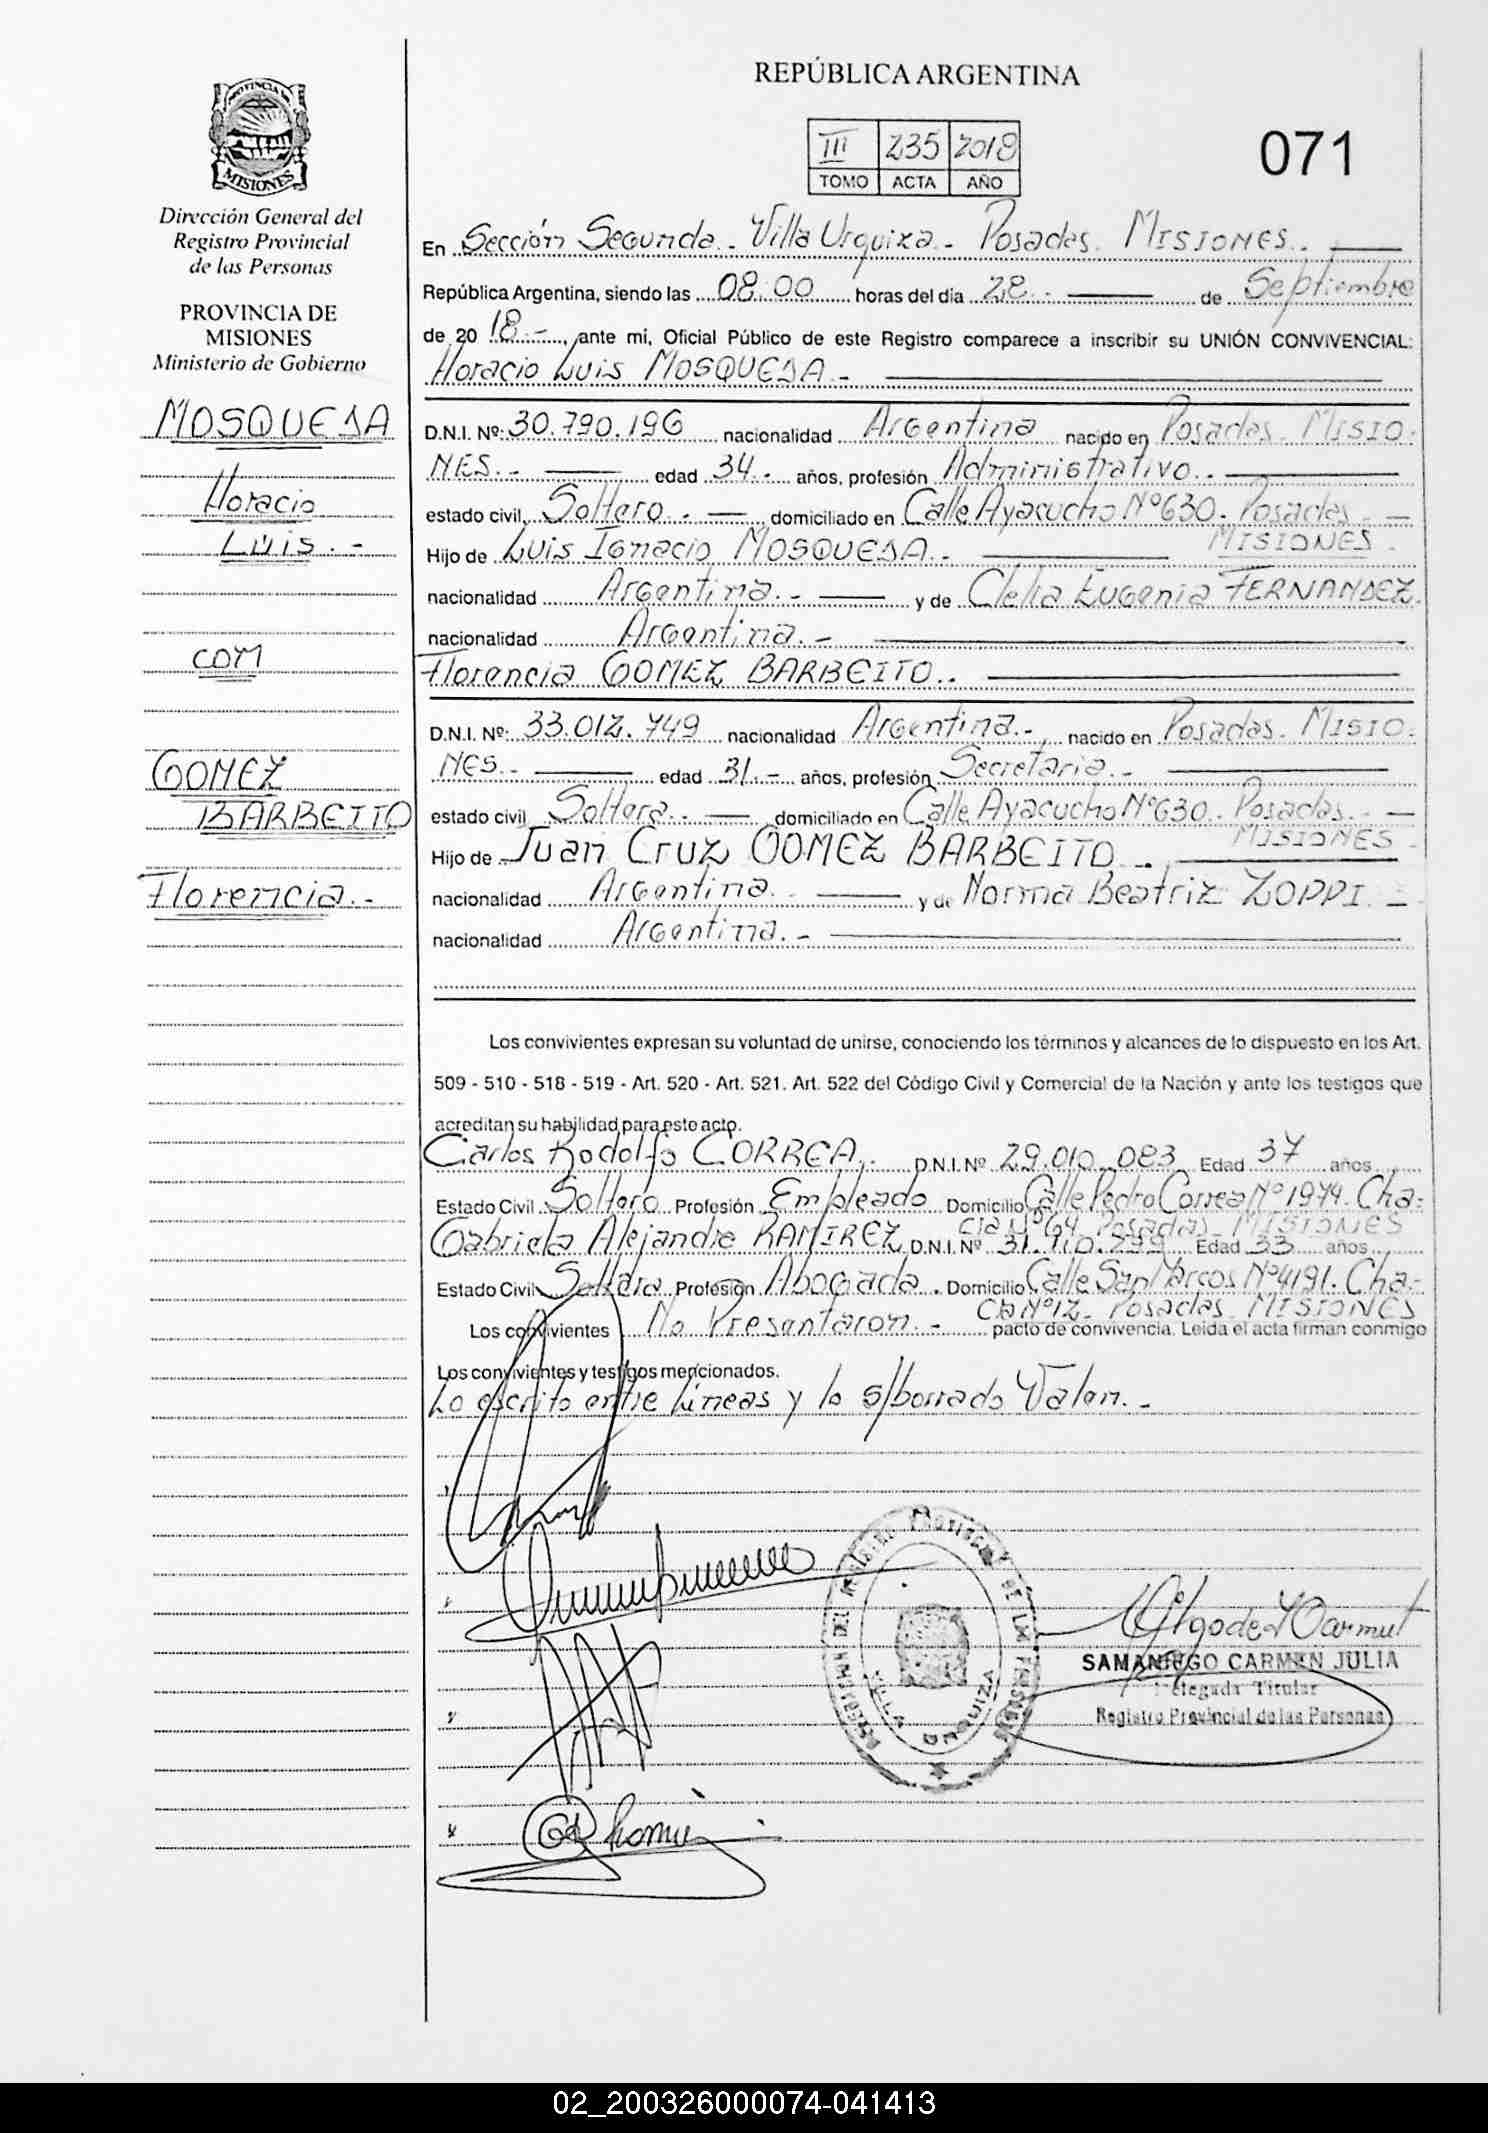 REPÚBLICA ARGENTINA
III 235 2018
TOMO ACTA AÑO
071
PROVINCIA DE
MISIONES
Dirección General del
Registro Provincial
de las Personas
PROVINCIA DE
MISIONES
Ministerio de Gobierno
MOSQUEDA
Horacio
Luis.-
con
GOMEZ
BARBEITO
Florencia.-
En Sección Segunda.- Villa Urquiza.- Posadas. MISIONES.
República Argentina, siendo las 08:00 horas del día 28.- de Septiembre
de 2018.-, ante mi, Oficial Público de este Registro comparece a inscribir su UNIÓN CONVIVENCIAL:
Horacio Luis MOSQUEDA.-
D.N.I. Nº: 30.790.196 nacionalidad Argentina nacido en Posadas. MISIO-
NES.- edad 34.- años, profesión Administrativo..
estado civil Soltero.- domiciliado en Calle Ayacucho Nº630. Posadas.
MISIONES.
Hijo de Luis Ignacio MOSQUEDA.-
nacionalidad Argentina.- y de Clelia Eugenia FERNANDEZ.
nacionalidad Argentina.-
Florencia GOMEZ BARBEITO..
D.N.I. Nº: 33.012.749 nacionalidad Argentina.- nacido en Posadas. MISIO-
NES.- edad 31.- años, profesión Secretaria.-
estado civil Soltera.- domiciliado en Calle Ayacucho Nº630. Posadas.-
MISIONES
Hijo de Juan Cruz GOMEZ BARBEITO.
nacionalidad Argentina.- y de Norma Beatriz ZOPPI.
nacionalidad Argentina.-
Los convivientes expresan su voluntad de unirse, conociendo los términos y alcances de lo dispuesto en los Art.
509 - 510 - 518 - 519 - Art. 520 - Art. 521. Art. 522 del Código Civil y Comercial de la Nación y ante los testigos que
acreditan su habilidad para este acto.
Carlos Rodolfo CORREA.- D.N.I. Nº 29.010.083 Edad 37 años
Estado Civil Soltero Profesión Empleado Domicilio Calle Pedro Correa Nº1974. Cha-
cra Nº64. Posadas. MISIONES
Gabriela Alejandra RAMIREZ D.N.I. Nº 31.110.799 Edad 33 años
Estado Civil Soltera Profesión Abogada. Domicilio Calle San Marcos Nº4191. Cha-
cra Nº12. Posadas. MISIONES
Los convivientes No Presentaron.- pacto de convivencia. Leida el acta firman conmigo
Los convivientes y testigos mencionados.
Lo escrito entre Líneas y lo s/borrado Valen.-
VILLA URQUIZA
SAMANIEGO CARMEN JULIA
Delegada Titular
Registro Provincial de las Personas
02_200326000074-041413